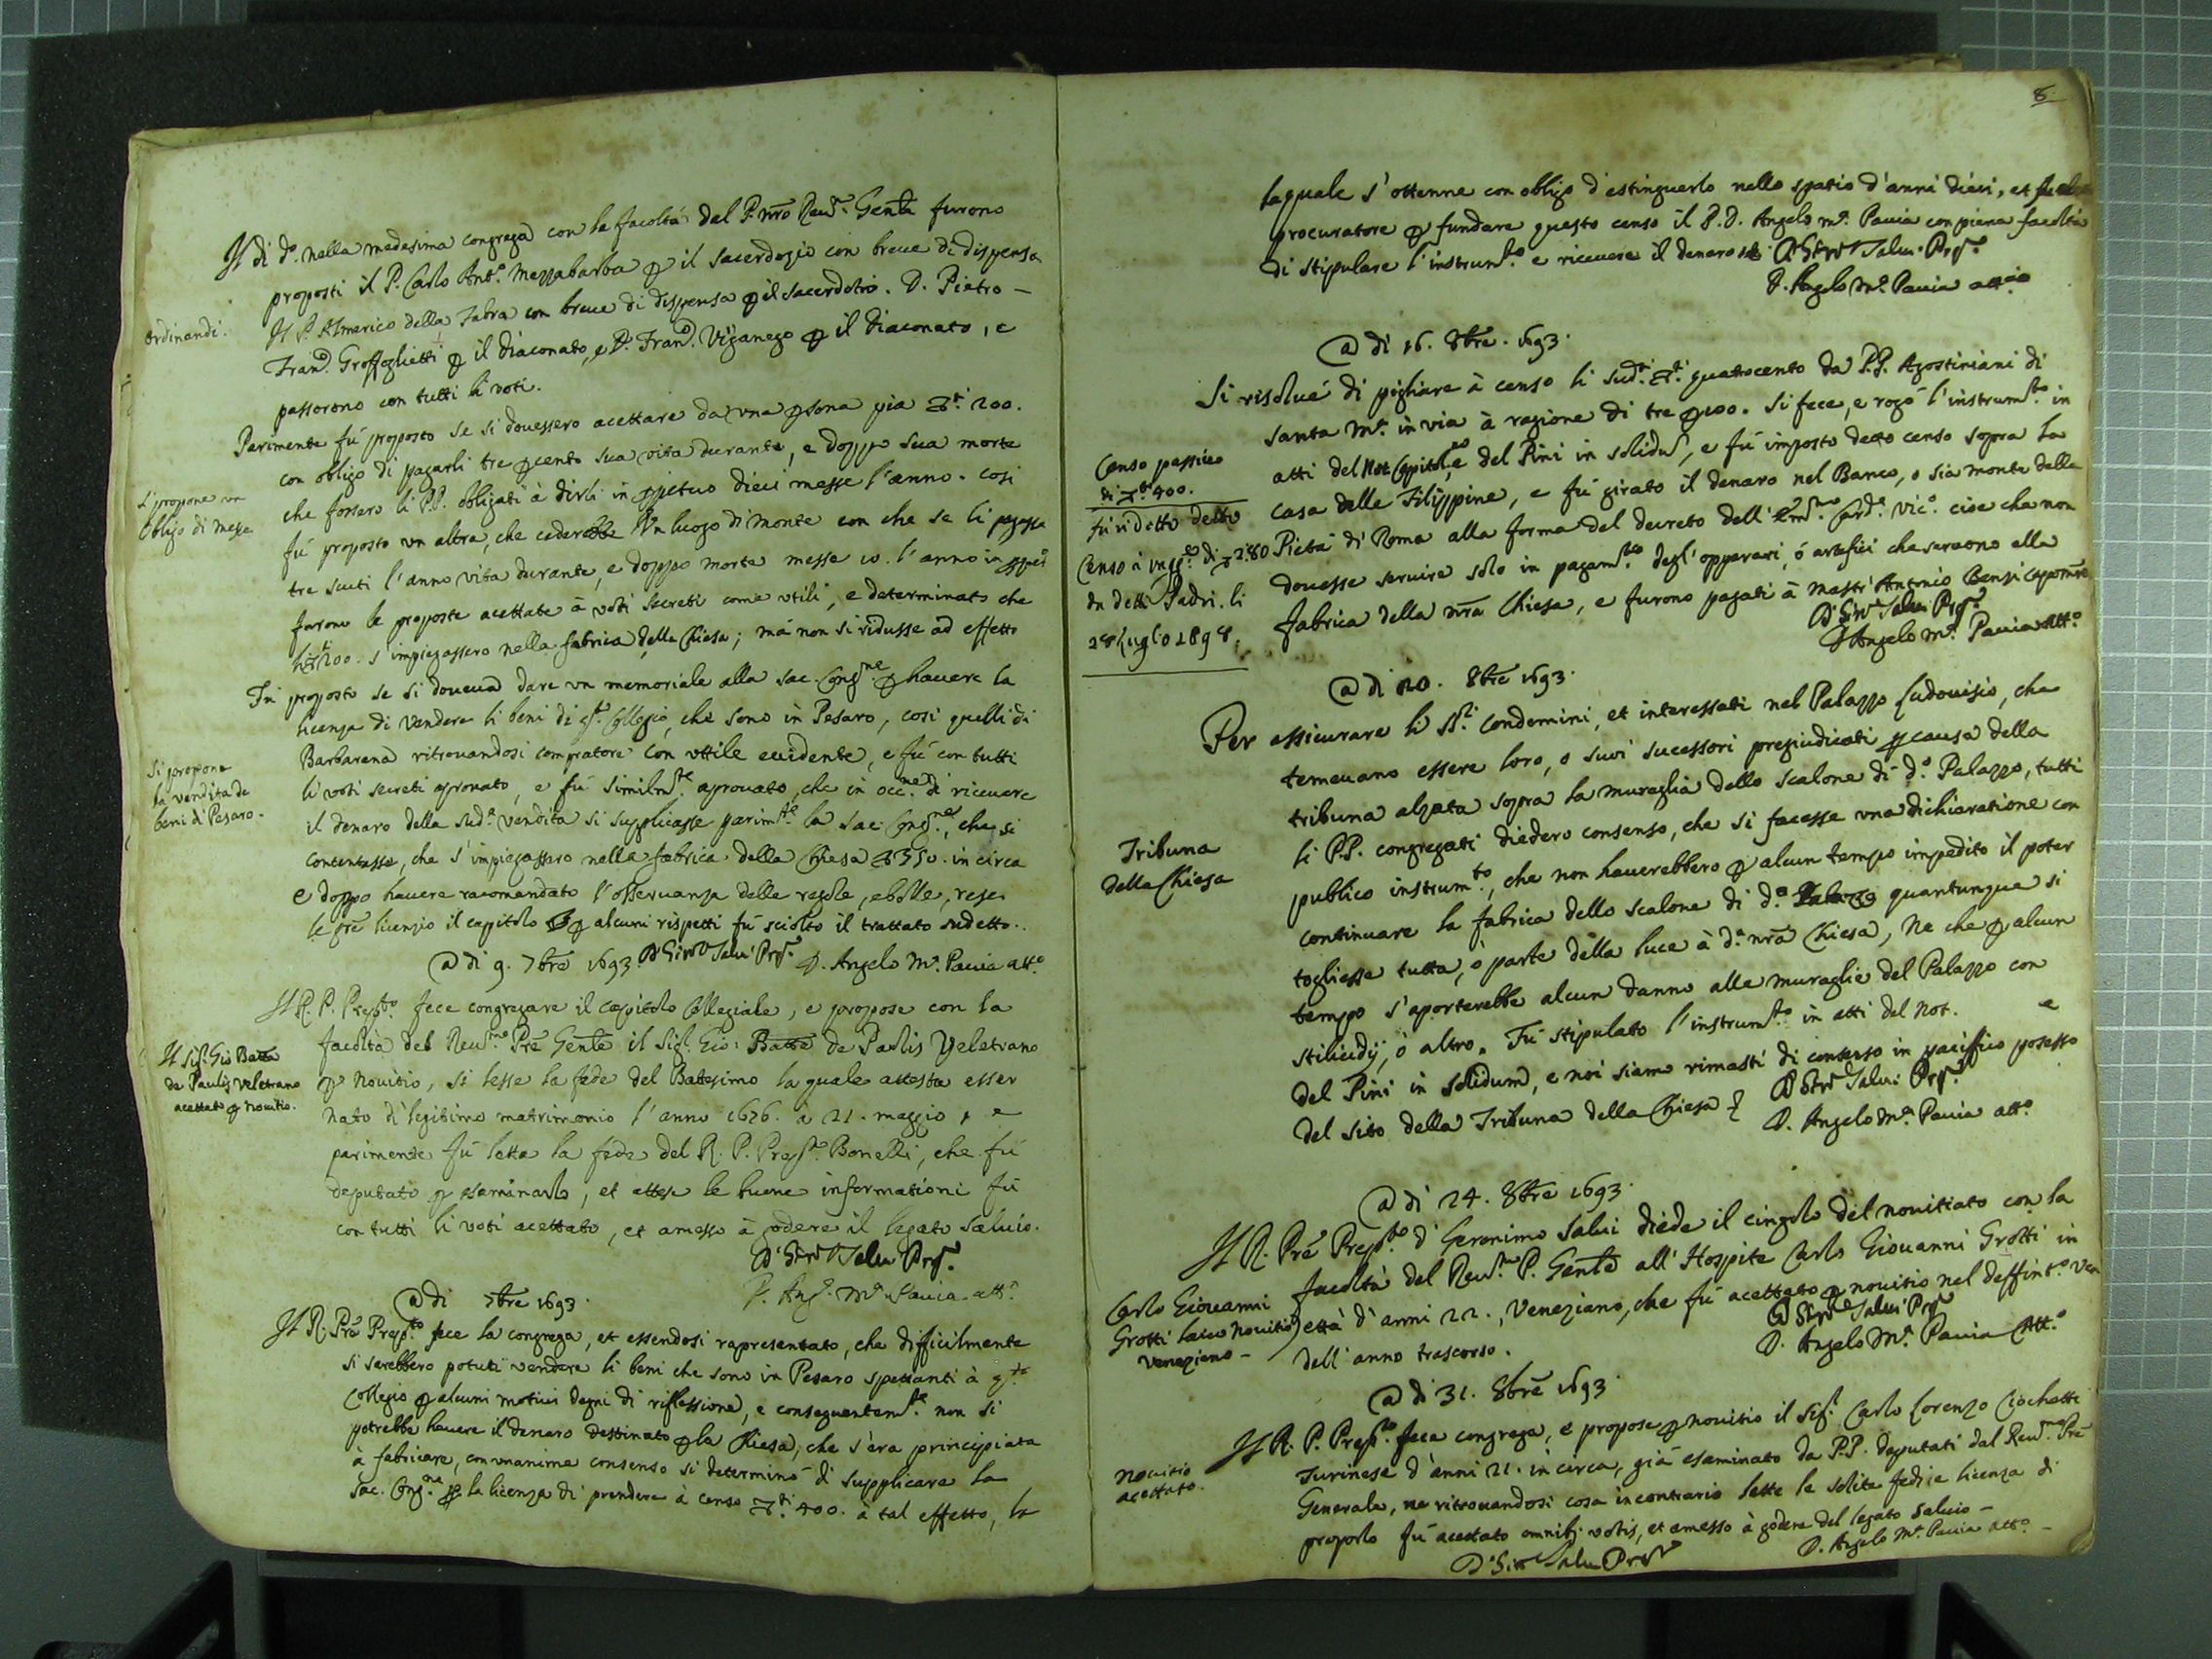 Il dì d.º nella medesima congrega con la facoltà del P. nro Reu.mo Gen̄le furono
proposti il P. Carlo Ant.º Mezzabarba p il sacerdozio con breue di dispensa
Il P. Almerico della Fabra con breue di dispensa p il sacerdotio. D. Pietro –
Fran.º Groffoglietti p il diaconato, e D. Fran.º Viganego p il Diaconato, e
passorono con tutti li voti.
ordinandi.
Parimente fù proposto se si douessero acettare da vna psona pia ti 200.
con obligo di pagarli tre p cento sua vita durante, e doppo sua morte
che fossero li PP. obligati à dirli in ppetuo dieci messe l'anno. Così
fù proposto vn altra, che cederebbe vn luogo di monte con che se li pagasse
tre scuti l'anno vita durante, e doppo morte messe 10. l'anno in
furono le proposte acettate à voti secreti come vtili, e determinato che
200. s'impiegassero nella fabrica della Chiesa; mà non si ridusse ad effetto
Si propone vn
obligo di messe
Fù proposto se si doueua dare vn memoriale alla sac. Cong.ne p hauere la
licenza di vendere li beni di q.to Collegio, che sono in Pesaro, così quelli di
Barbarana ritrouandosi compratore con vttile euidente, e fù con tutti
li voti secreti aprouato, e fù similm.te aprouato, che in occ.ne di riceuere
il denaro della sud.a vendita si supplicasse parim.te la sac. Cong.ne, che si
contentasse, che s'impiegassero nella fabrica della Chiesa 350. in circa
e doppo hauere racomandato l'osseruanza delle regole, e bolle, rese
le gr̄e licenzio il capitolo p alcuni rispetti fù sciolto il trattato sudetto.
Si propone
la vendita de
beni di Pesaro.
A di 9. 7bre 1693. D. Gir.º Salui Prep.to D. Angelo M.a Pauia att.º
Il R. P. Prep.to fece congregare il capitolo Collegiale, e propose con la
facoltà del Reu.mo Prē Gen̄le il Sig.r Gio: Batta de Paulis Veletrano
p nouitio, si lesse la fede del Batesimo la quale attesta esser
nato di legitimo matrimonio l'anno 1676. à 21. maggio, e
parimente fù letta la fede del R. P. Prep.to Bonelli, che fù
deputato p esaminarlo, et attese le buone informationi fù
con tutti li voti acettato, et amesso à godere il legato saluio.
Il Sig.r Gio Batta
de Paulis Veletrano
acettato p nouitio.
D. Gir.º Salui Prep.to
D. Ang.º M.a Pauia att.º
A di 7bre 1693.
Il R. Prē Prep.to fece la congrega, et essendosi rapresentato, che difficilmente
si sarebbero potuti vendere li beni che sono in Pesaro spettanti à q.to
Collegio p alcuni motiui degni di riflessione, e conseguentem.te non si
potrebbe hauere il denaro destinato p la Chiesa, che s'era principiata
à fabricare, con vnanime consenso si determinò di supplicare la
sac. Cong.ne p la licenza di prendere à censo ti 400. à tal effetto, la
8
la quale s'ottenne con obligo d'estinguerlo nello spatio d'anni dieci, et fù
procuratore p fundare questo censo il P. D. Angelo M.a Pauia con piena facoltà
di stipulare l'instrum.to e riceuere il denaro D. Gir.º Salui Prep.to
D. Angelo M.a Pauia att.º
A di 16. 8bre. 1693.
Si risolué di pigliare à censo li sud.i ti quattrocento da P.P. Agostiniani di
santa M.a in via à ragione di tre p 100. si fece, e rogò l'instrum.to in
atti del Not. Capitol.no e del Pini in solidu, e fù imposto detto censo sopra la
casa delle Filippine, e fù girato il denaro nel Banco, o sia monte della
Pietà di Roma alla forma del decreto dell'Em.mo Card.e Vic.º cioe che non
douesse seruire solo in pagam.to degl'opperari, ó artefici che seruono alla
fabrica della nrā Chiesa, e furono pagati à Mastr'Antonio Benzi capom̄ro
Censo passiuo
di ti 400.
fù ridotto detto
Censo à di 280
da detti Padri. li
28 Luglio 1898.
D. Gir.º Salui Prep.to
D Angelo M.a Pauia Att.º
A di 20. 8bre 1693.
Per assicurare li SS.ri condomini, et interessati nel Palazzo Ludouisio, che
temeuano essere loro, o suoi sucessori pregiudicati p causa della
tribuna alzata sopra la muraglia dello scalone di d.º Palazzo, tutti
li P.P. congregati diedero consenso, che si facesse vna dichiaratione con
publico instrum.to, che non hauerebbero p alcun tempo impedito il poter
continuare la fabrica dello scalone di d.º Palazzo quantunque si
togliesse tutta, ò parte della luce à d.a nrā Chiesa, Ne che p alcun
tempo s'aporterebbe alcun danno alle muraglie del Palazzo con
stilicidij, ò altro. Fù stipulato l'instrum.to in atti del Not. e
del Pini in solidum, e noi siamo rimasti di consenso in paciffico posesso
del sito della Tribuna della Chiesa
Tribuna
della Chiesa
D Gir.º Salui Prep.to
D. Angelo M.a Pauia att.º
A di 24. 8bre 1693.
Il R. Prē Prep.to D Geronimo Salui diede il cingolo del nouitiato con la
facoltà del Reu.mo P. Gen̄le all'Hospite Carlo Giouanni Grotti in
età d'anni 22., Veneziano, che fù acettato p nouitio nel deffinit.º
dell'anno trascorso.
Carlo Giouanni
Grotti laico nouitio
Veneziano –
D Gir.º Salui Prep.to
D. Angelo M.a Pauia Att.º
A di 31. 8bre 1693.
Il R. P. Prep.to fece congrega, e propose p nouitio il Sig.r Carlo Lorenzo Ciochetti
Turinese d'anni 21. in circa, già esaminato da P.P. deputati dal Reu.mo Prē
Generale, ne ritrouandosi cosa in contrario lette le solite fedi e licenza di
proporlo fù acettato omnib; votis, et amesso à godere del legato saluio –
nouitio
acettato.
D. Gir.º Salui Prep.to D. Angelo M.a Pauia att.º –